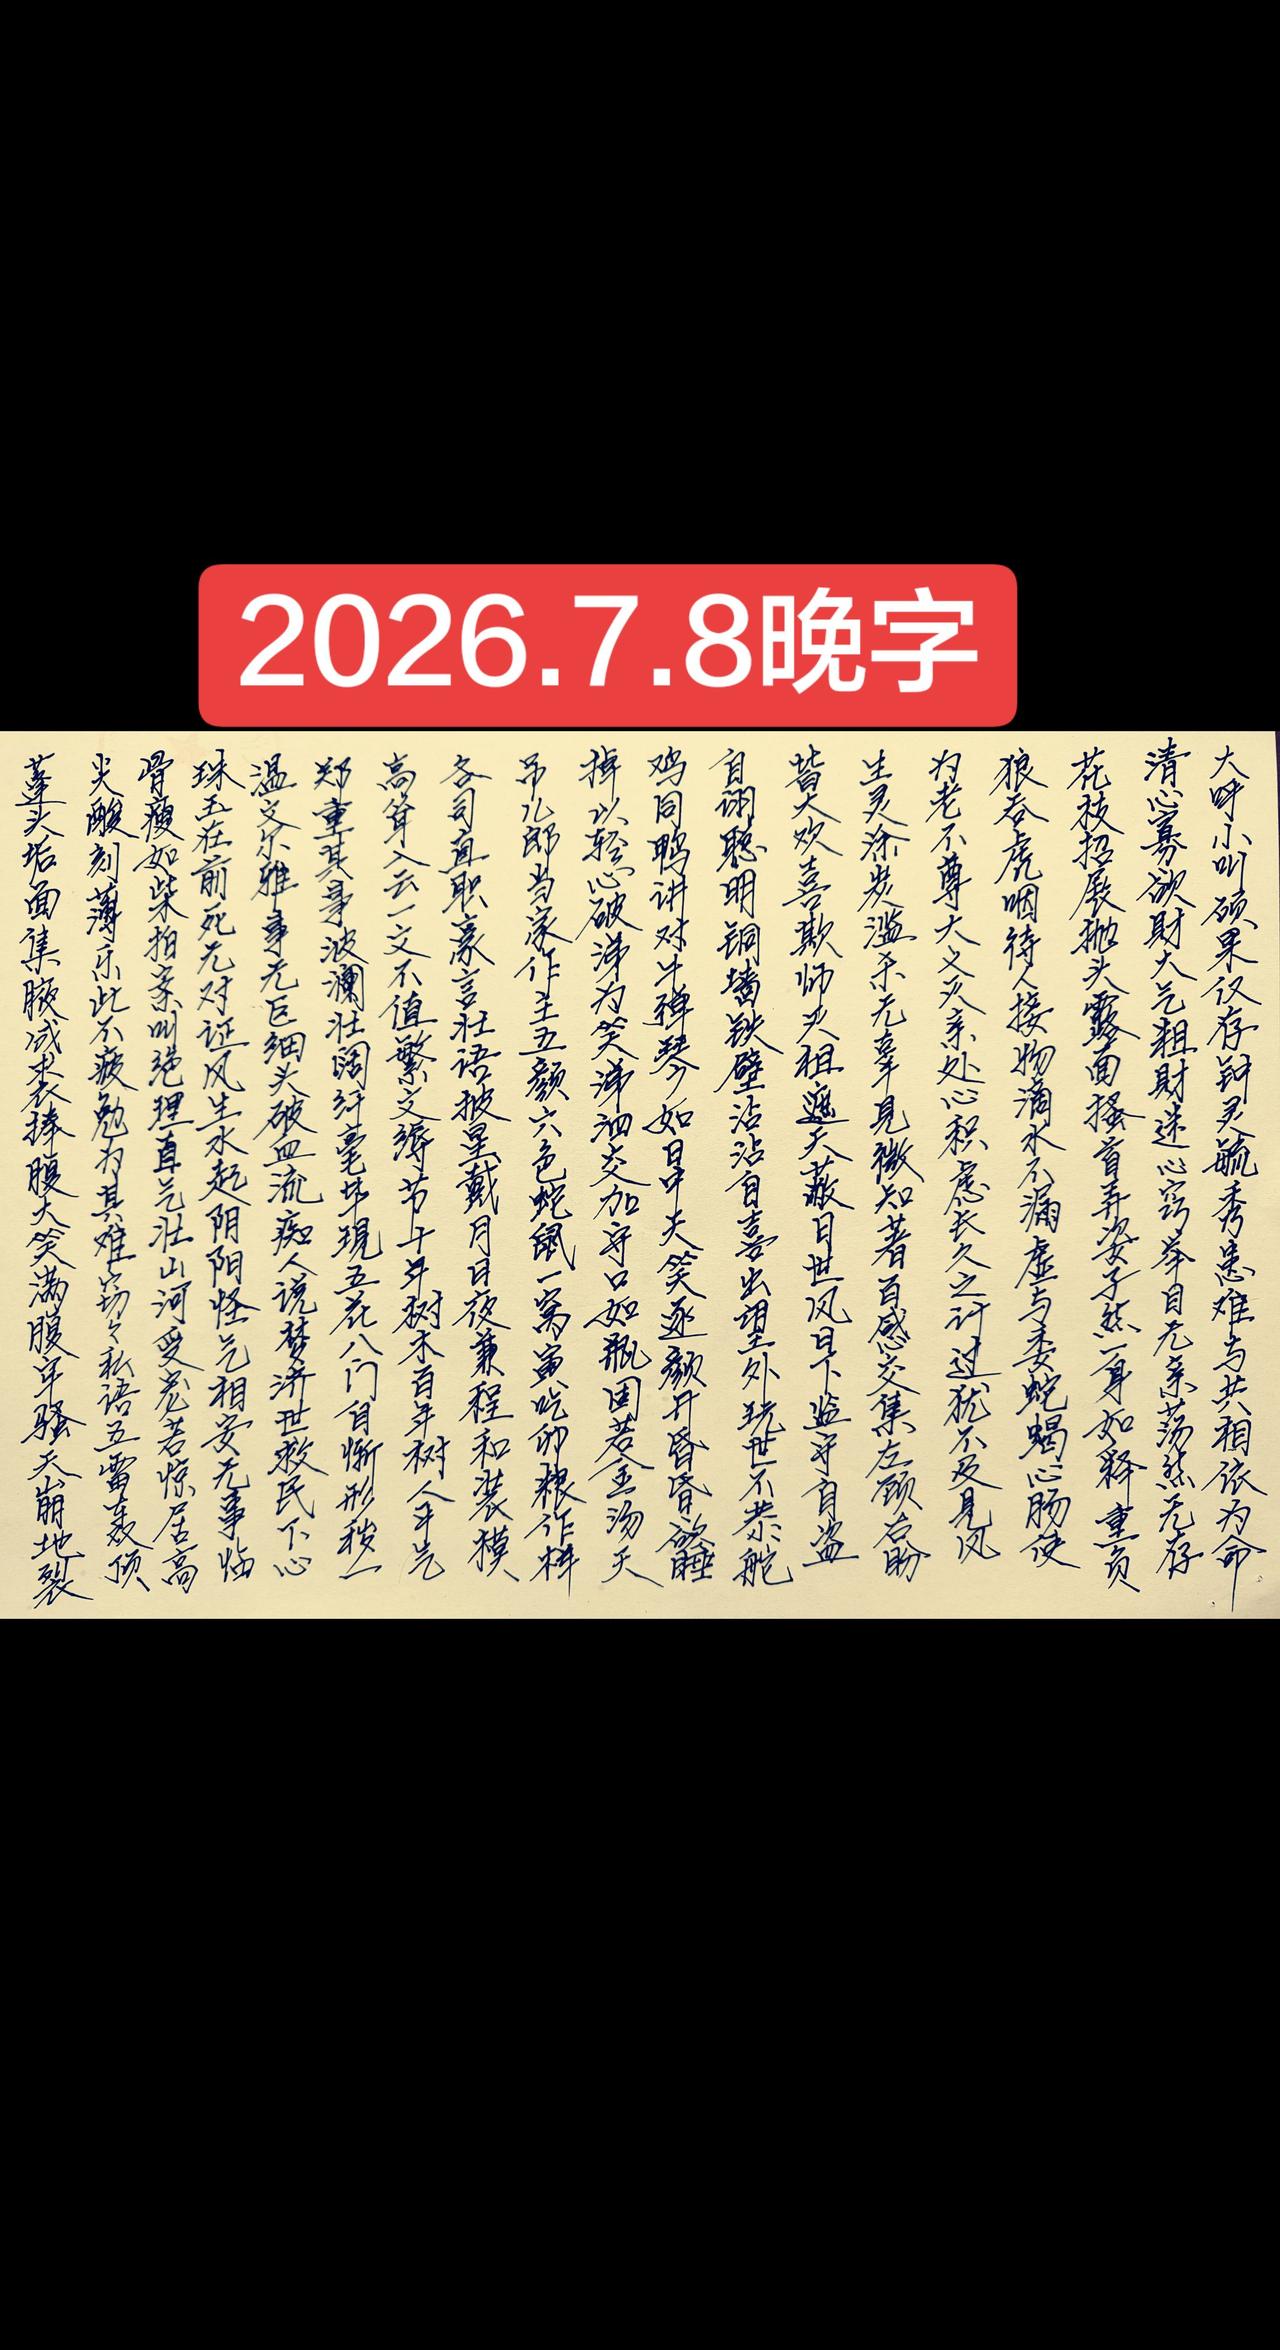 2026.7.8晚字
大呼小叫硕果仅存钟灵毓秀患难与共相依为命
清心寡欲财大气粗财迷心窍举目无亲荡然无存
花枝招展抛头露面搔首弄姿孑然一身如释重负
狼吞虎咽待人接物滴水不漏虚与委蛇蝎心肠使
为老不尊大义灭亲处心积虑长久之计过犹不及见风
生灵涂炭滥杀无辜见微知著百感交集左顾右盼
皆大欢喜欺师灭祖遮天蔽日世风日下监守自盗
自诩聪明铜墙铁壁沾沾自喜出望外玩世不恭舵
鸡同鸭讲对牛弹琴如日中天笑逐颜开昏昏欲睡
掉以轻心破涕为笑涕泗交加守口如瓶固若金汤天
吊儿郎当家作主五颜六色蛇鼠一窝寅吃卯粮作样
各司直职豪言壮语披星戴月日夜兼程和装模
高耸入云一文不值繁文缛节十年树木百年树人平气
郑重其事波澜壮阔纤毫毕现五花八门自惭形秽一
温文尔雅事无巨细头破血流痴人说梦济世救民下心
珠玉在前死无对证风生水起阴阳怪气相安无事临
骨瘦如柴拍案叫绝理直气壮山河受宠若惊居高
尖酸刻薄乐此不疲勉为其难窃々私语五雷轰顶
蓬头垢面集腋成裘捧腹大笑满腹牢骚天崩地裂